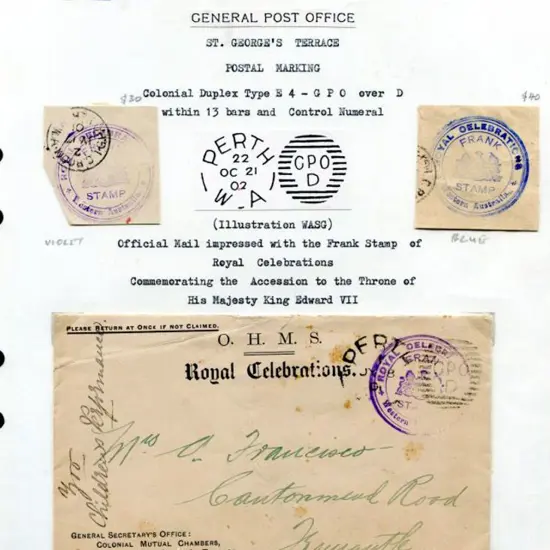 GENERAL POST OFFICE
ST. GEORGE'S TERRACE
POSTAL MARKING
Colonial Duplex Type E 4 - G P O over D
within 13 bars and Control Numeral
$30
$40
ROYAL CELEBRATIONS
FRANK
STAMP
Western Australia
STAMP
Western Australia
PERTH
22
OC 21
02
W-A
GPO
D
(Illustration WASG)
VIOLET
BLUE
Official Mail impressed with the Frank Stamp of
Royal Celebrations
Commemorating the Accession to the Throne of
His Majesty King Edward VII
PLEASE RETURN AT ONCE IF NOT CLAIMED.
O. H. M. S.
Royal Celebrations.
PERT
ROYAL CELEBR
FRAN
GPO
D
ST
Western
Children's Performance
Mrs A Francisco
Cantonment Road
Fremantle
GENERAL SECRETARY'S OFFICE:
COLONIAL MUTUAL CHAMBERS,